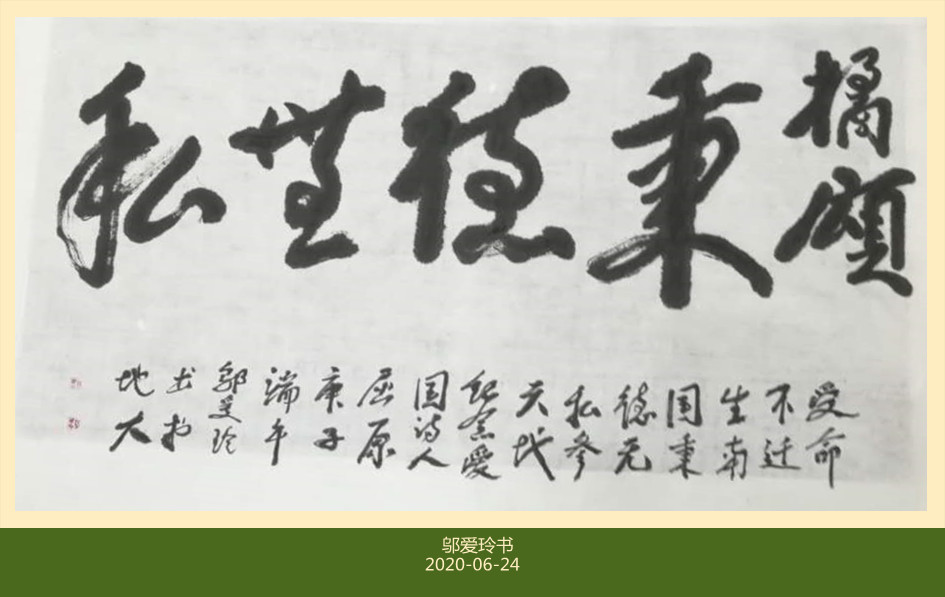 橘頌
秉德無私
受命
不迁
生南
国秉
德无
私参
天地
紀念愛
国诗人
屈原
庚子
端午
邬爱玲
书於
地大
邬爱玲书
2020-06-24